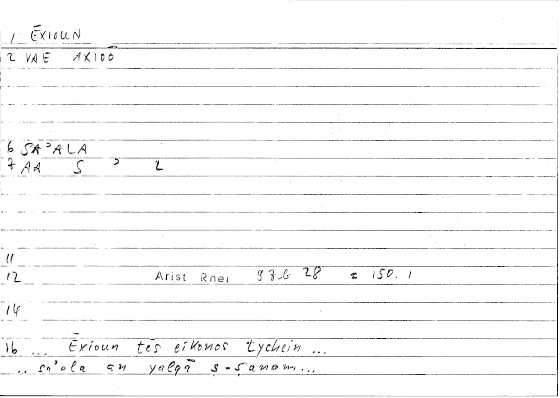 1 ĒXIOUN
2 VAE AXIOO
6 SA'ALA
7 AA S ' L
11
12 Arist Rhet 93b 28 = 150.1
14
16 ... Ēxioun tēs eikonos tychein ...
.. sa'ala an yalqā ṣ-ṣanam...